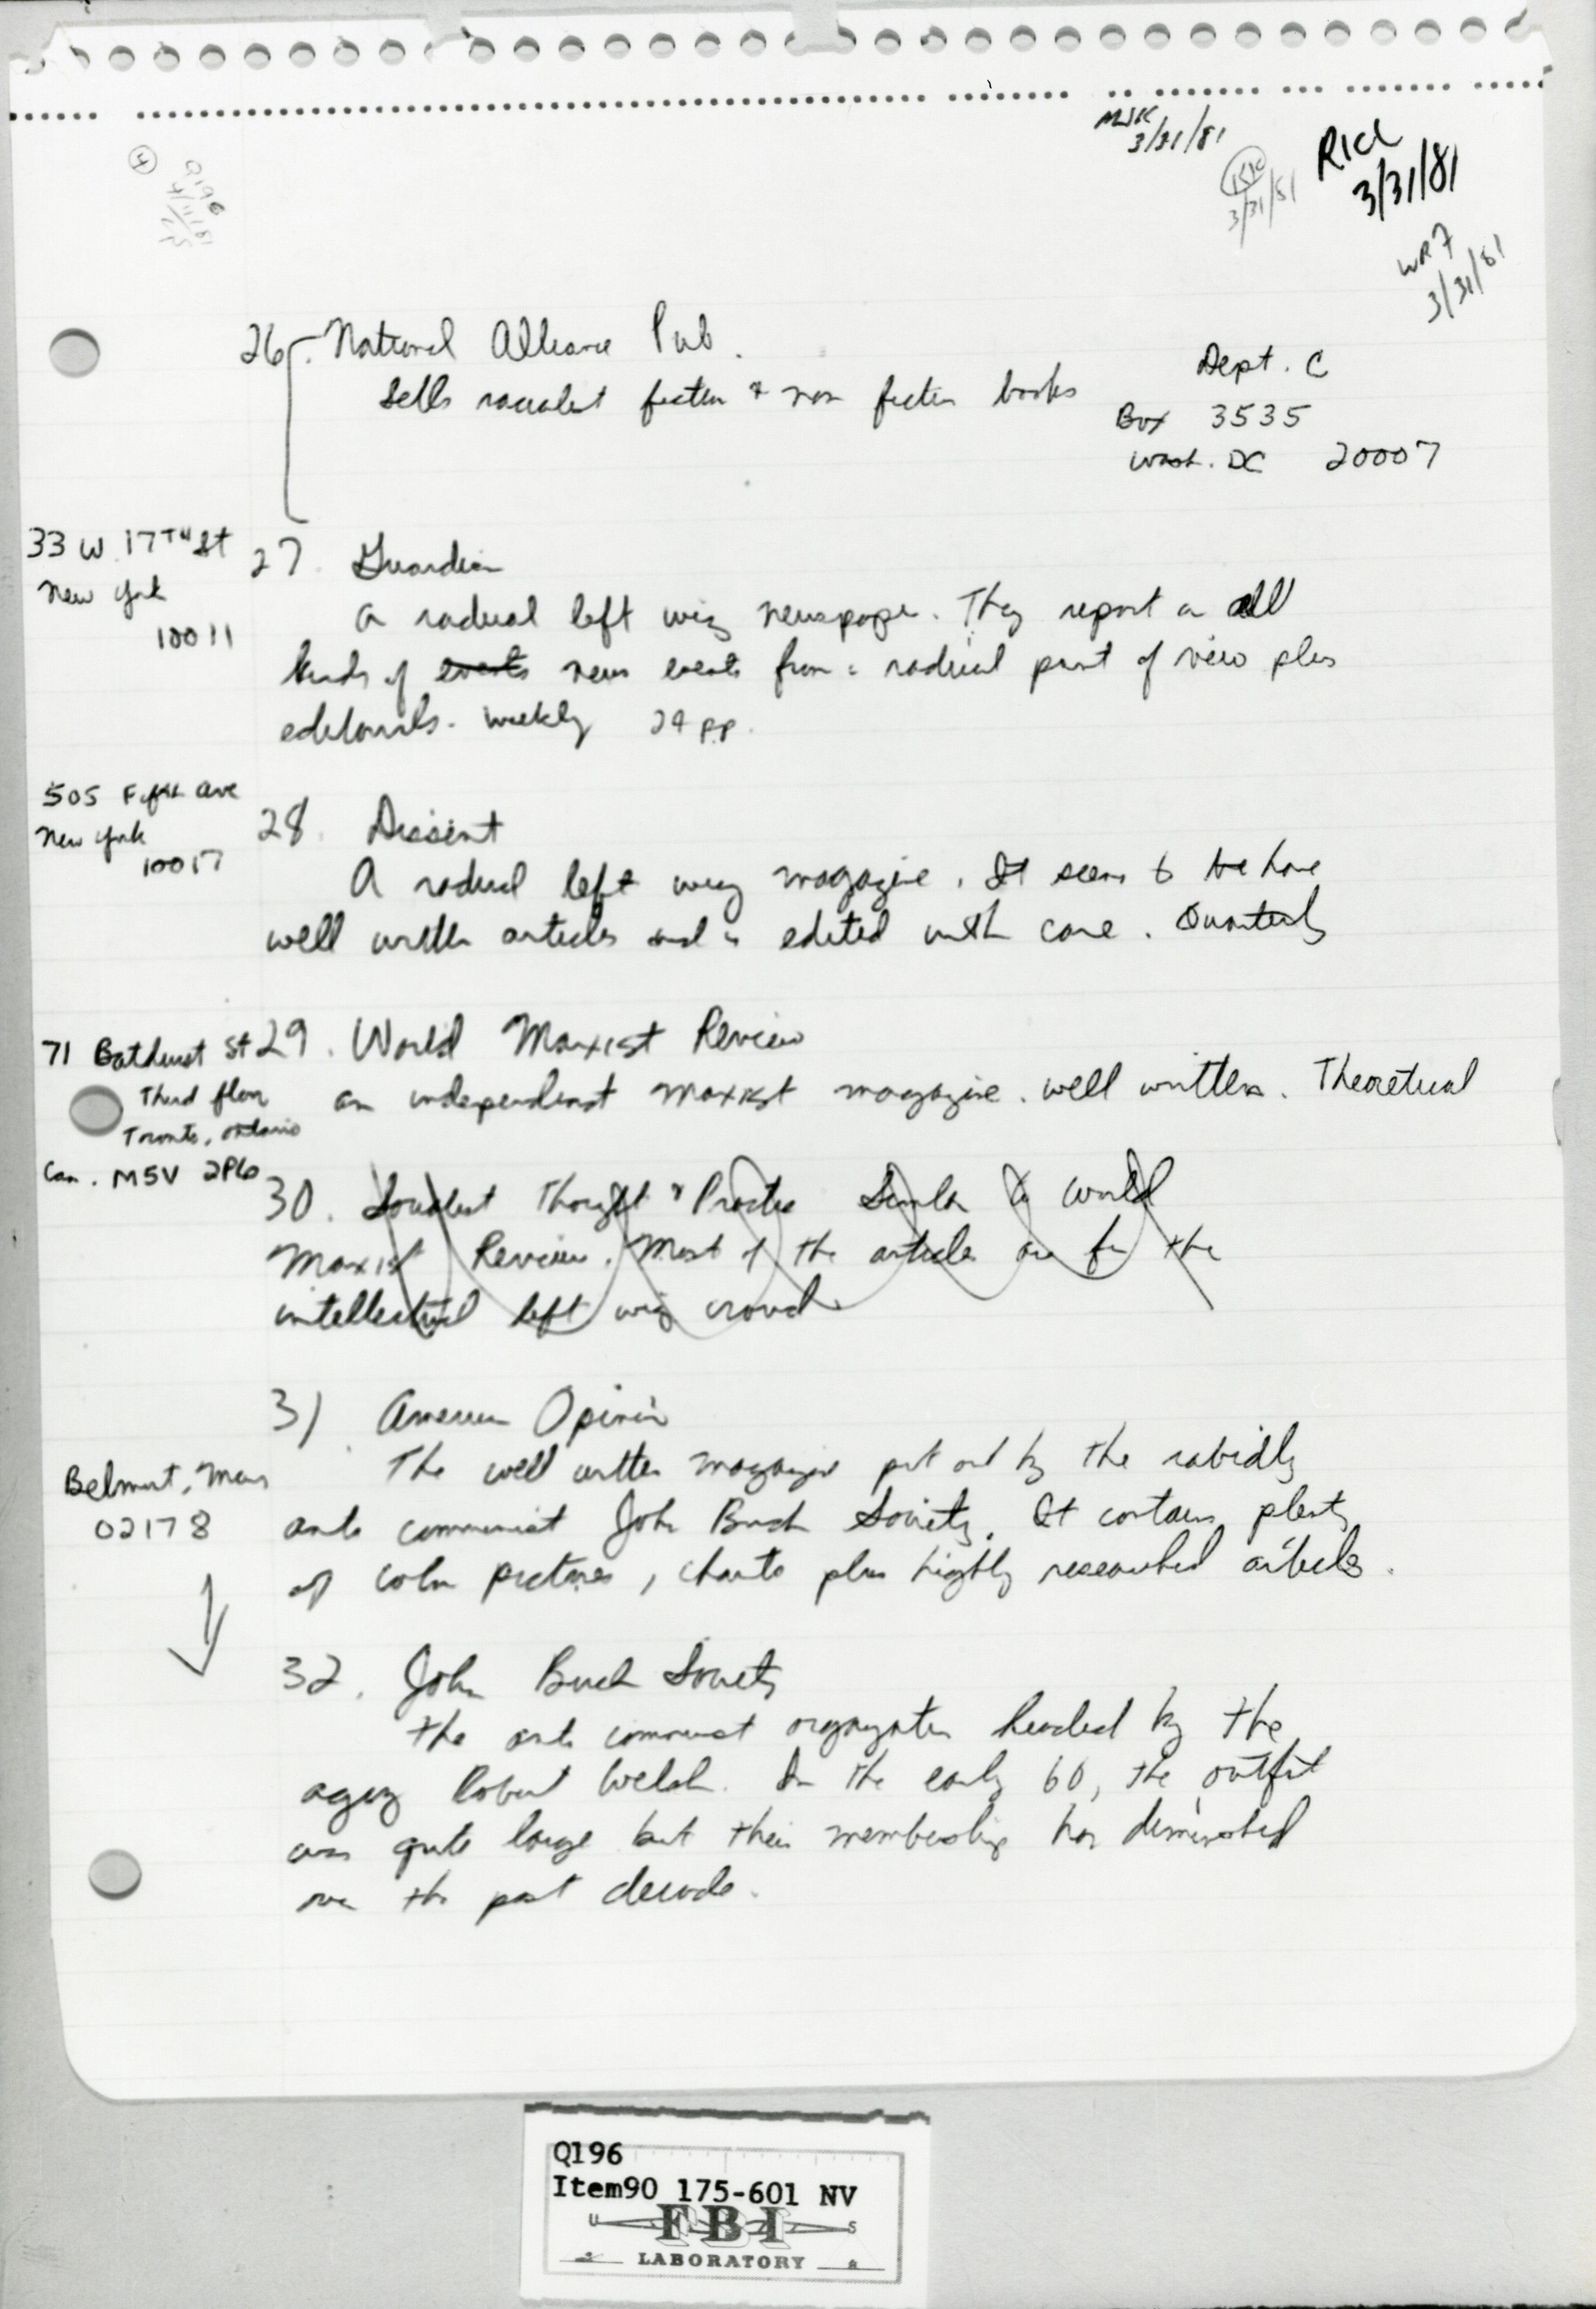 MJK
3/31/81
3/31/81
RICL
3/31/81
WR7
3/31/81
4
Q196
4/11/81
26. National Alliance Pub.
Sells racialist fiction & non fiction books
Dept. C
Box 3535
Wash. DC 20007
33 W 17TH St
New York
10011
27. Guardian
A radical left wing newspaper. They report on all
kinds of events news events from a radical point of view plus
editorials. Weekly 24 pp.
505 Fifth Ave
New York
10017
28. Dissent
A radical left wing magazine. It seems to be have
well written articles and is edited with care. Quarterly
71 Bathurst St
Third floor
Toronto, Ontario
Can. M5V 2P6
29. World Marxist Review
an independent Marxist magazine. well written. Theoretical
30. Socialist Thought & Practice Similar to World
Marxist Review. Most of the articles are for the
intellectual left wing crowd
31. American Opinion
The well written magazine put out by the rabidly
anti communist John Birch Society. It contains plenty
of color pictures, charts plus highly researched articles.
Belmont, Mass
02178
32. John Birch Society
The anti communist organization headed by the
aging Robert Welch. In the early 60, the outfit
was quite large but their membership has diminished
over the past decade.
Q196
Item90 175-601 NV
U S
FBI
LABORATORY